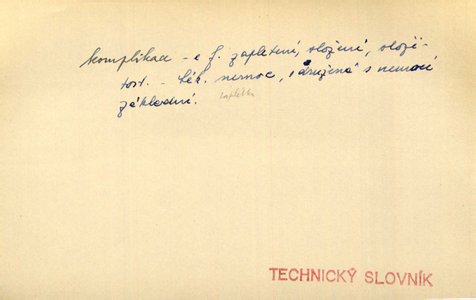 komplikace - e f. zapletení, složení, složi-
tost. - lék. nemoc, sdružená s nemocí
základní.
TECHNICKÝ SLOVNÍK